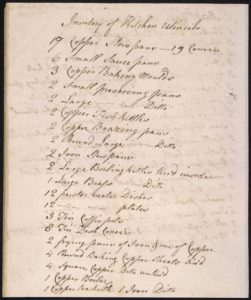 Inventory of Kitchen Utincels
17 Copper Stewpans — 19 Covers
6 Small Sauce pans
3 Copper Baking Moulds
2 Small Preserving pans
2 Large — Ditto
2 Copper Fish kettles
2 Copper pans
2 Round Large — Ditto
2 Iron Stewpans
2 Large Boiling kettles tin'd
1 Large Brass — Ditto
12 pewter water Dishes
12 — plates
3 Tin Coffe pots
8 Tin Dish Covers
2 frying pans of Iron & one of Copper
4 Round Baking Copper Sheets tin'd
4 Square Copper Ditto untin'd
1 Copper Boiler
1 Copper 1 Iron Ditto